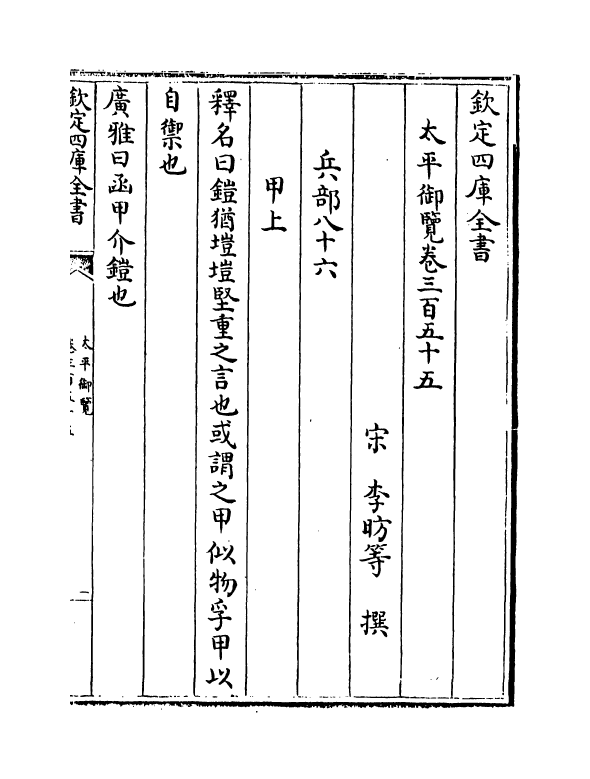 欽定四庫全書
太平御覽卷三百五十五
宋 李昉等 撰
兵部八十六
甲上
釋名曰鎧猶塏塏堅重之言也或謂之甲似物孚甲以
自禦也
廣雅曰函甲介鎧也
欽定四庫全書
太平御覽
卷三百五十五